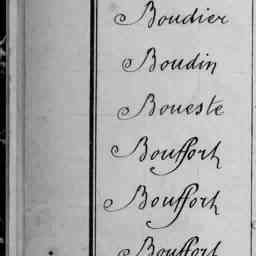 Boudier
Boudin
Boueste
Bouffort
Bouffort
Bouffort